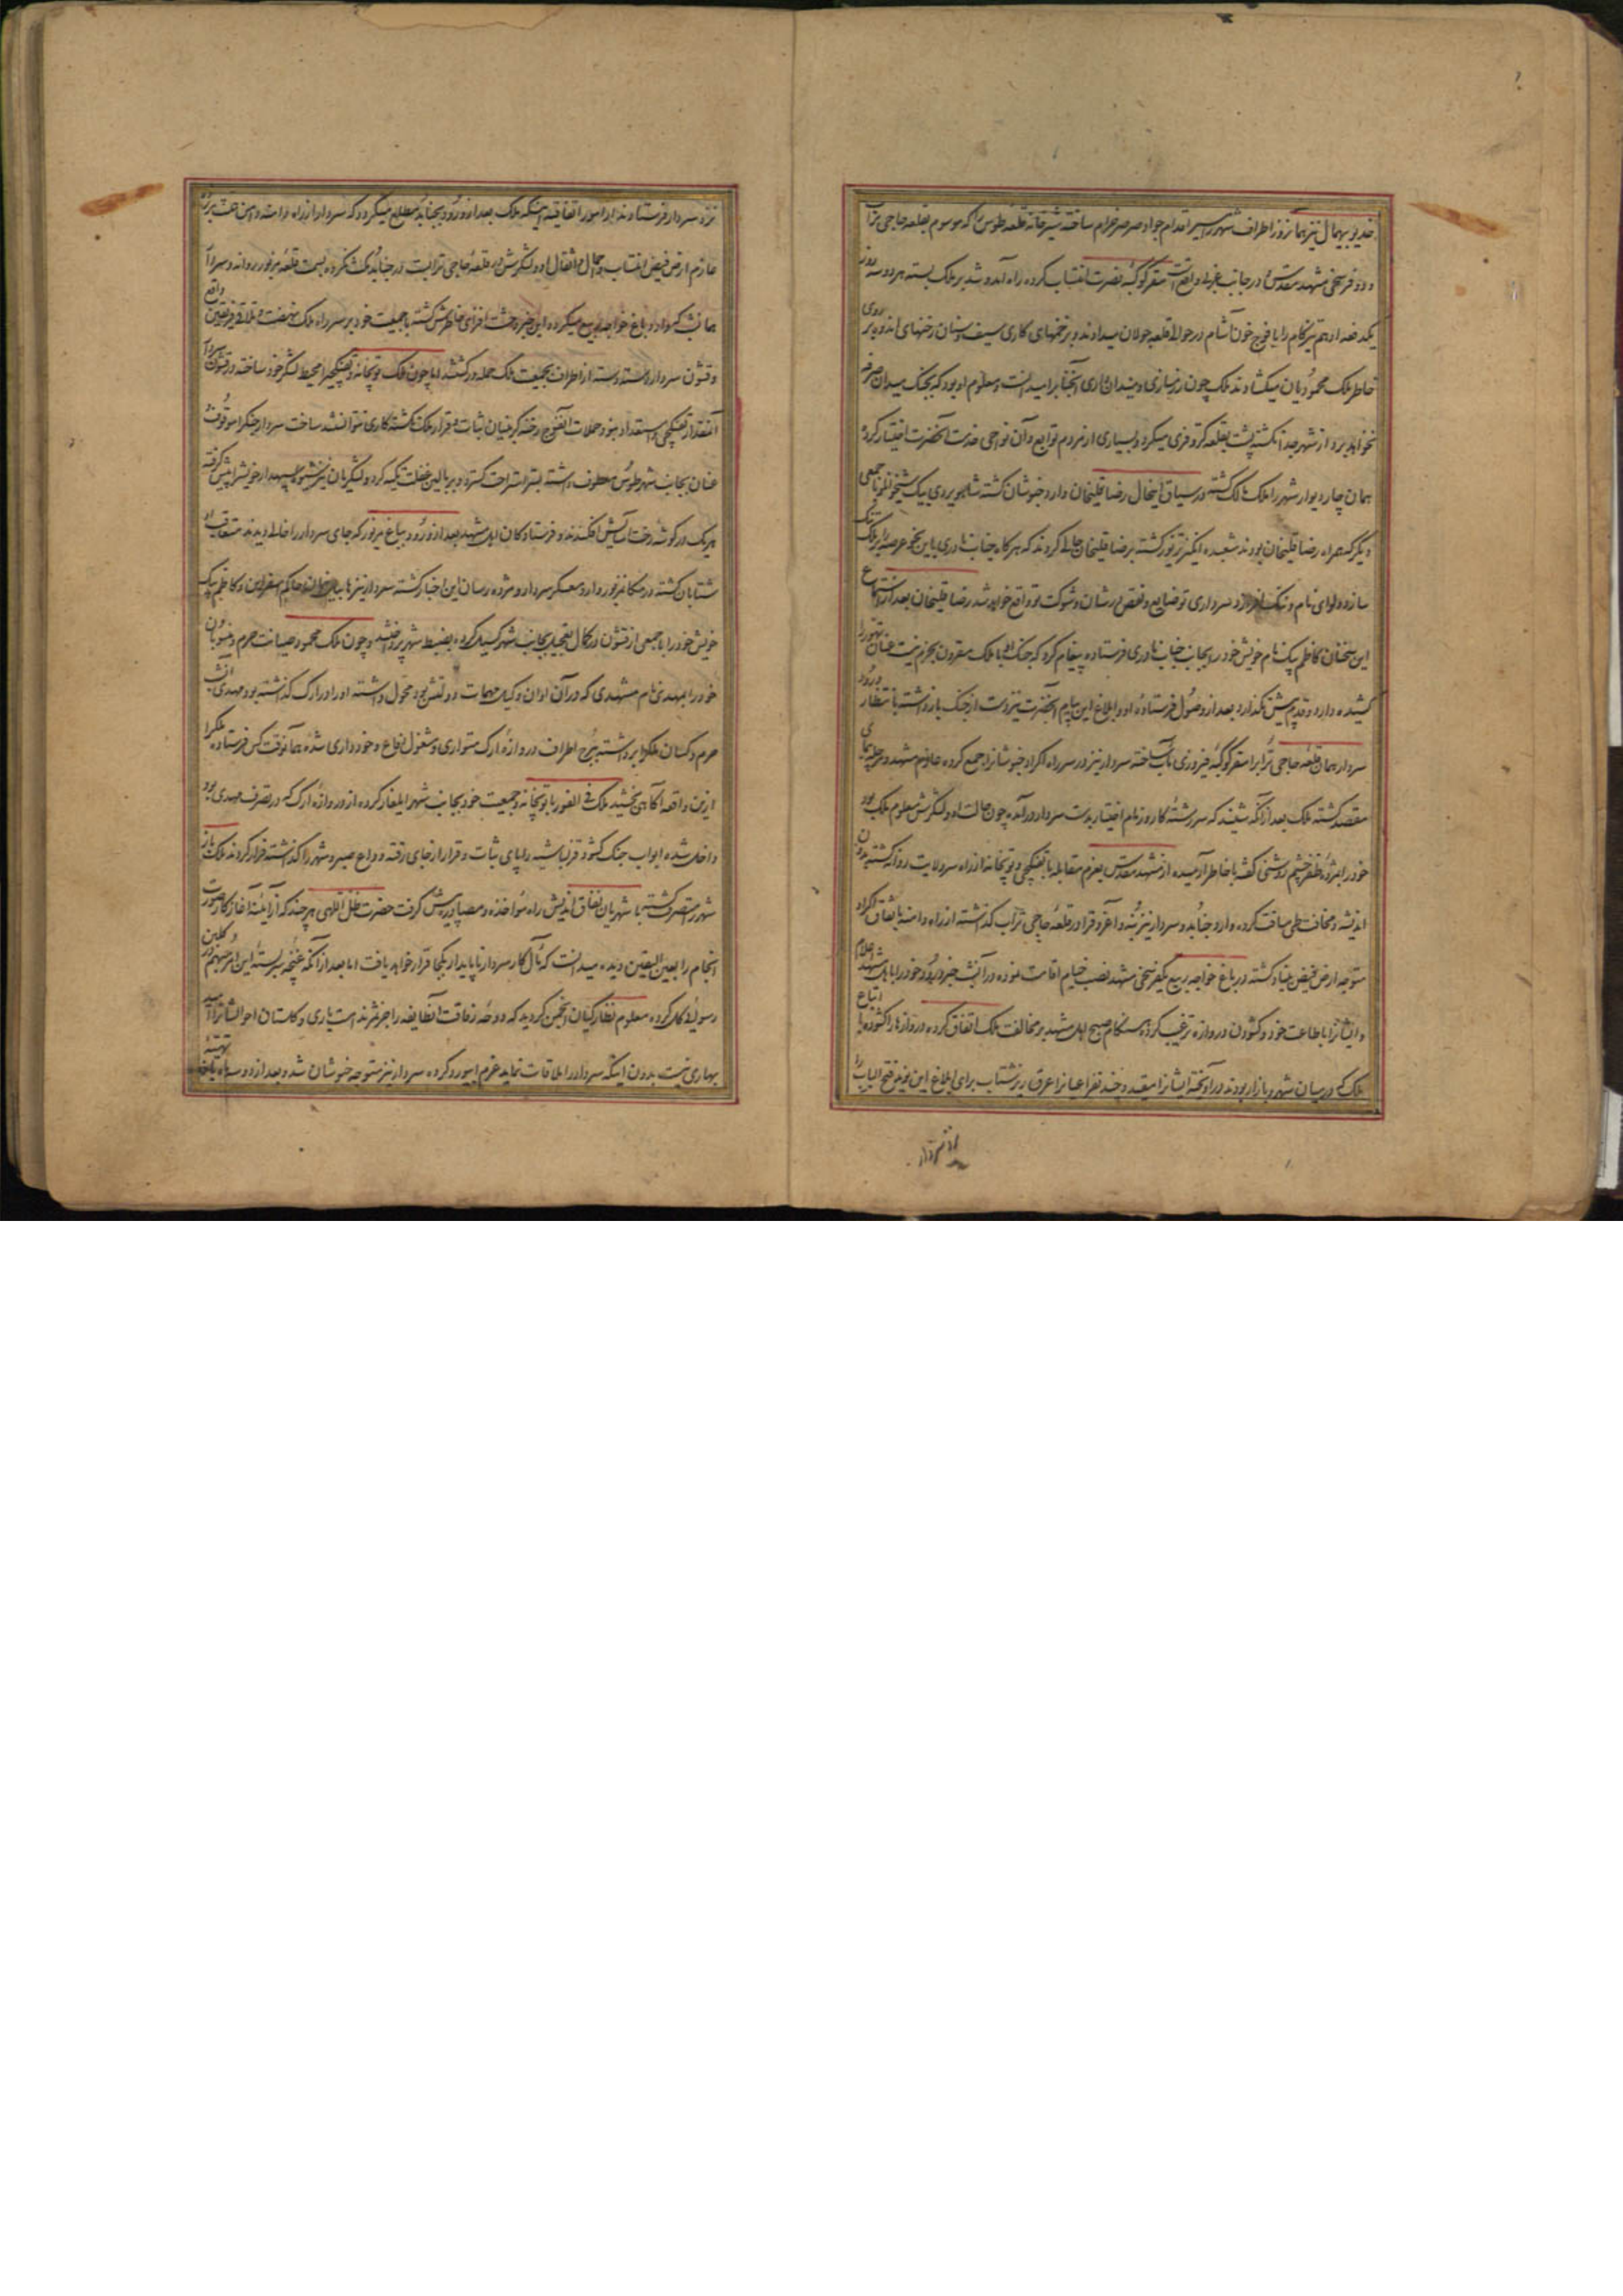 خدیو بیهمال نیز همانروز اطراف شهر را سیر اقدام جواد صرصر خرام ساخته شیرخانه قلعه طوس را که موسوم بقلعه حاجی تراب
و دو فرسخی مشهد مقدس در جانب غربی واقع است مقر کوکبه نصرت انتساب کرده راه آمد و شد بر ملک بسته هر دو سه روز
یکدفعه ادهم تیزکام را با فوج خون آشام در حوالی قلعه جولان میدادند و بر زخمهای کاری سیف و سنان رخنهای اندوه بر روی
خاطر ملک محمودیان میکشادند ملک چون رزم سازی و میدان داری آنجناب را میدانست و معلوم او بود که بجنک میدان صرفه
نخواهد برد از شهر جدا نکشته پشت بقلعه کر و فری میکرد و بسیاری از مردم توابع و آن نواحی خدمت آنحضرت اختیار کرده
همان چار دیوار شهر را ملک مالک کشته در سیاق اینحال رضا قلیخان وارد خبوشان کشته شاهویردی بیک شیخوانلو با جمعی
دیگر که همراه رضا قلیخان بودند شعبده انکیز تزویر کشته بر رضا قلیخان حالی کردند که هر کاه جناب نادری باین نحو عرصه را بر ملک تنک
سازد و لوای نام و ننک افرازد سرداری تو ضایع و نقص در شان و شوکت تو واقع خواهد شد رضا قلیخان بعد از استماع
این سخنان کاظم بیک نام خویش خود را بجانب جناب نادری فرستاده پیغام کرد که جنک او با ملک مقرون بحزم نیست عنان تهور را
کشیده دارد و قدم پیش نکذارد بعد از وصول فرستاده او و ابلاغ این پیام آنحضرت نیز دست از جنک باز داشته بانتظار ورود
سردار همان قلعه حاجی تراب را مقر کوکبه فیروزی مآب ساخته سردار نیز در سر راه اکراد خبوشان را جمع کرده عازم مشهد و مرحله پیمای
مقصد کشته ملک بعد از آنکه شنید که سر رشته کار و زمام اختیار بدست سردار در آمده چون حالت او و لشکرش معلوم ملک بود
خود را بمژده ظفر چشم روشنی کفته با خاطر آرمیده از مشهد مقدس بعزم مقابله با تفنکچی و توپخانه از راه سر ولایت روانه کشته بدون
اندیشه و مخافت طی مسافت کرده وارد جنابد و سردار نیز بنه و آغروق را در قلعه حاجی تراب کذاشته از راه دامنه باتفاق اکراد
متوجه ارض فیض بنیاد کشته در باغ خواجه ربیع یکفرسخی مشهد نصب خیام اقامت نموده در آنشب خبر ورود خود را باهل مشهد اعلام
و ایشان را باطاعت خود و کشودن دروازه ترغیب کرده هنکام صبح اهل مشهد بر مخالفت ملک اتفاق کرده دروازه ها را کشوده اتباع
ملک که در میان شهر و بازار بودند در آویخته ایشان را مقید و چند نفر اعیان را عرق ریز شتاب برای ابلاغ این نوید فتح الباب را
نزد سردار فرستادند از امور اتفاقیه اینکه ملک بعد از ورود بجنابد مطلع میکردد که سردار از راه دامنه
عازم ارض فیض انتساب و احمال و اثقال او و لشکرش در قلعه حاجی ترابست در جنابد مکث نکرده بسمت قلعه مزبور روانه و سردار
همانشب که وارد باغ خواجه ربیع میکردد این خبر وحشت افزای خاطرش کشته با جمعیت خود بر سر راه ملک نهضت و تلاقی فریقین واقع
و قشون سردار دسته دسته از اطراف بجمعیت ملک حمله ور کشتند اما چون ملک توپخانه و تفنکچی را محیط لشکر خود ساخته در قشون سردار
آنقدر از تفنکچی و استعداد نبود حملات آنفوج رخنه کر بنیان ثبات و قرار ملک نکشته کاری نتوانستند ساخت سردار جنک را موقوف
عنان بجانب شهر طوس معطوف داشته بستر استراحت کسترد و بر بالین غفلت تکیه کرد و لشکریان نیز شیوه سپهدار خویش را پیش کرفته
هر یک در کوشه رخت آسایش افکندند و فرستادکان اهل مشهد بعد از ورود بباغ مزبور که جای سردار را خالی دیدند متعاقب او
شتابان کشته در مکان مزبور وارد معسکر سردار و مژده رسان این اخبار کشته سردار نیز حاکم اسفراین و کاظم بیک
خویش خود را با جمعی از قشون در کمال تعجیل بجانب شهر کسیل کرده بضبط شهر پرداختند و چون ملک محمود صیانت حرم و منسوبان
خود را بمهدی نام مشهدی که در آن اوان وکیل مهمات و نقش بود محول داشته او را در ارک کذاشته بود مهدی آنشب
حرم و کسان ملک را برداشته ببرج اطراف دروازه ارک متواری و مشغول دفاع و خودداری شده همانوقت کس فرستاده ملک را
ازین واقعه آکاهی بخشید ملک فی الفور با توپخانه و جمعیت خود بجانب شهر ایلغار کرده از دروازه ارک که در تصرف مهدی بود
داخل شده ابواب جنک کشود قزلباشیه را پای ثبات و قرار از جای رفته وداع صبر و شهر را کذاشته فرار کردند ملک باز
شهر را متصرف کشته با شهریان نفاق اندیش راه مؤاخذه و مصادره پیش کرفت حضرت ظل اللهی هر چند که از آئینه آغاز کار صورت
انجام را بعین الیقین دیده میدانست که مآل کار سردار ناپایدار بکجا قرار خواهد یافت اما بعد از آنکه غنچه سربسته این امر مبهم در کلبن
رسوائی کل کرده معلوم نظارکیان انجمن کردید که دوحه رفاقت آنطایفه را جز ثمر ندامت باری و کلستان احوالشان را امید
بهاری نیست بدون اینکه سردار را ملاقات نماید عزم ابیورد کرده سردار نیز متوجه خبوشان شد و بعد از دو سه ماه